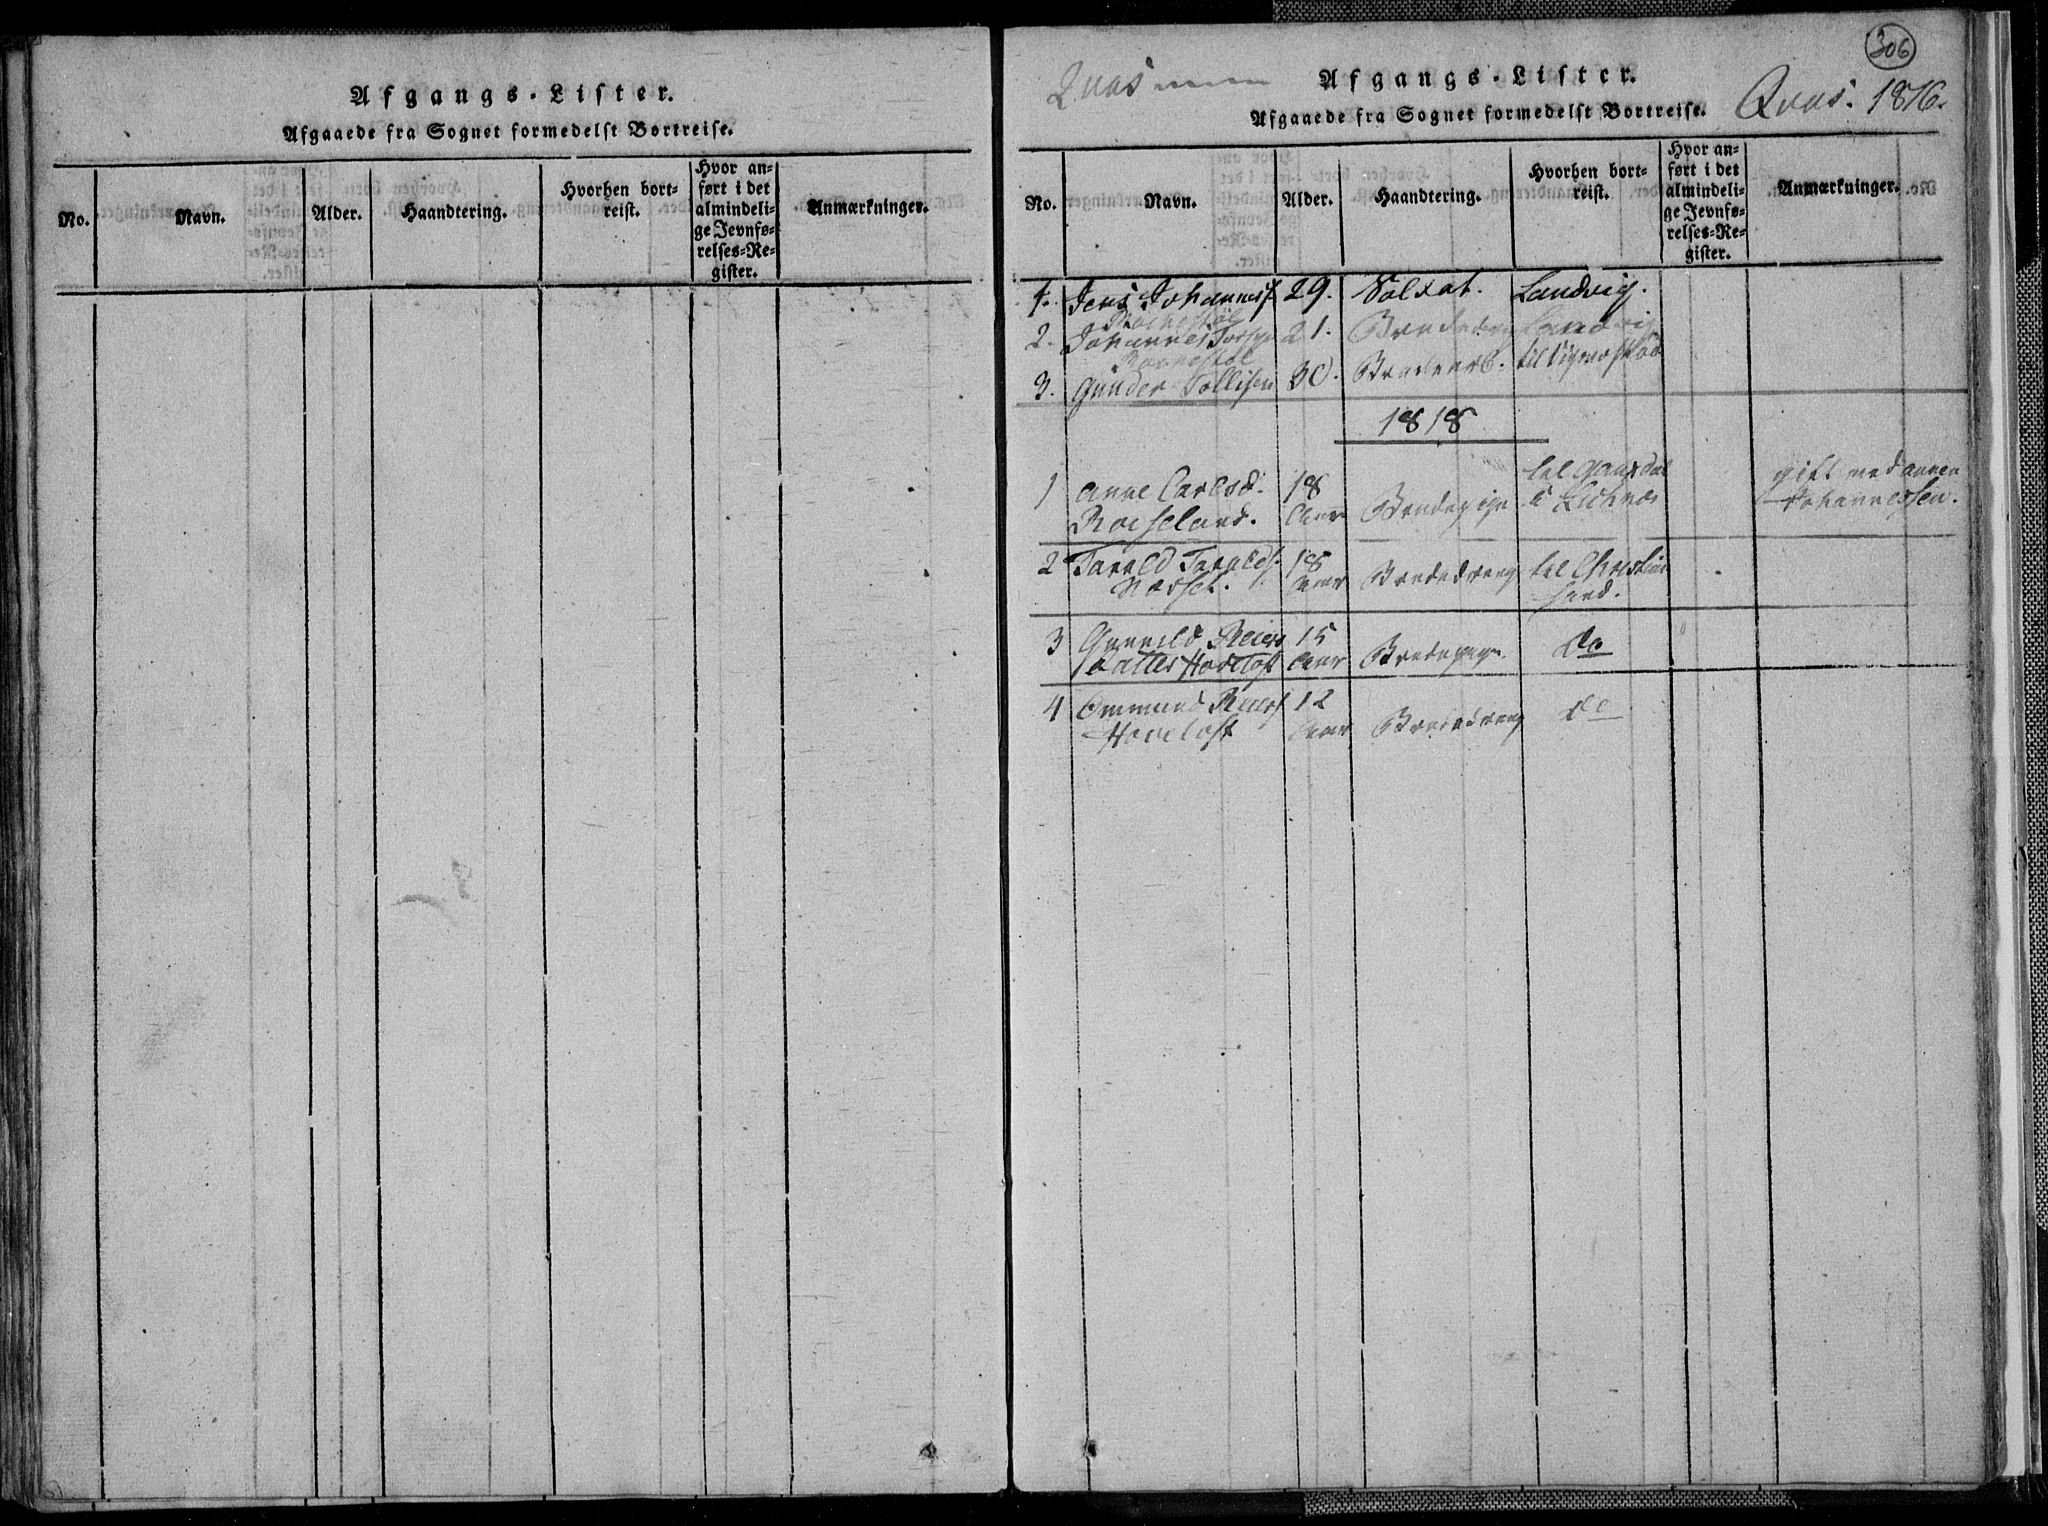 Afgangs-Lister.
Afgaaede fra Sognet formedelst Bortreise.
No.
Navn.
Alder.
Haandtering.
Hvorhen bort-
reist.
Hvor an-
ført i det
almindeli-
ge Jevnfø-
relses-Re-
gister.
Anmærkninger.
306
Qvas
Afgangs-Lister.
Qvas. 1816.
Afgaaede fra Sognet formedelst Bortreise.
No.
Navn.
Alder.
Haandtering.
Hvorhen bort-
reist.
Hvor an-
ført i det
almindeli-
ge Jevnfø-
relses-Re-
gister.
Anmærkninger.
1. Jens Johannesf 29. Soldat. Landvig.
2. Johannes 21. Landvig
3. Gunder Tollisen 30.
1818
1 Anne Carlsd. 18 Bondepige til gift med
Roiseland. Aar i Johannessen.
2 Tarald Taraldsf. 18 Bondedreng til Christian
Aar sand.
3 Gunnild Reiers 15 Bondepige do
datter Hodeloft Aar
4 Ommund Reiersf 12 Bondedreng do
Hodeloft Aar